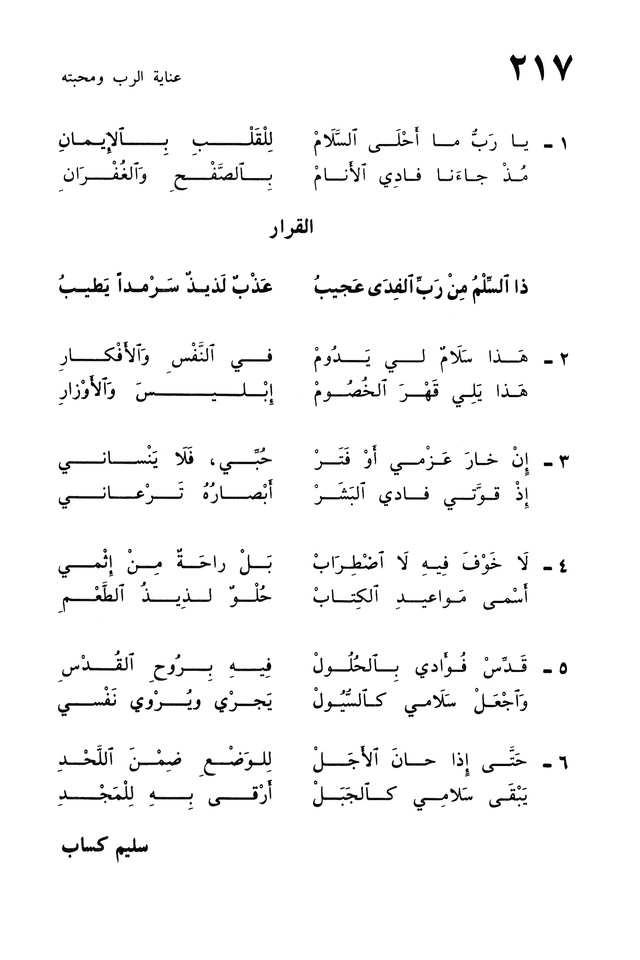 ٢١٧
عناية الرب ومحبته
١ - يا رَبُّ ما أَحْلَى ٱلسَّلَامْ لِلْقَلْبِ بِٱلإِيمَانِ
مُذْ جاءَنا فادِي ٱلأَنامْ بِٱلصَّفْحِ وَٱلغُفْرَانِ
القرار
ذا ٱلسِّلْمُ مِنْ رَبِّ ٱلفِدَى عَجيبُ عَذْبٌ لَذيذٌ سَرْمداً يَطيبُ
٢ - هَذا سَلَامٌ لي يَدُومْ في ٱلنَّفْسِ وَٱلأَفْكارِ
هَذا يَلِي قَهْرَ ٱلخُصُومْ إِبْليسَ وَٱلأَوْزارِ
٣ - إِنْ خارَ عَزْمي أَوْ فَتَرْ حُبِّي، فَلَا يَنْساني
إِذْ قوَّتي فادي ٱلبَشَرْ أَبْصارُهُ تَرْعاني
٤ - لَا خَوْفَ فيهِ لَا ٱضْطِرَابْ بَلْ راحَةٌ مِنْ إِثْمي
أَسْمى مَواعيدِ ٱلكِتابْ حُلْوٌ لذيذُ ٱلطَّعْمِ
٥ - قَدِّسْ فُؤادي بِٱلحُلُولْ فِيهِ بِرُوحِ ٱلقُدْسِ
وَٱجْعَلْ سَلَامي كٱلسُّيُولْ يَجرْي ويُروْي نَفْسي
٦ - حَتَّى إِذا حانَ ٱلأَجَلْ لِلوَضْعِ ضِمْنَ ٱللَّحْدِ
يَبْقَى سَلَامي كٱلجَبَلْ أَرْقى بِهِ لِلمَجْدِ
سليم كساب